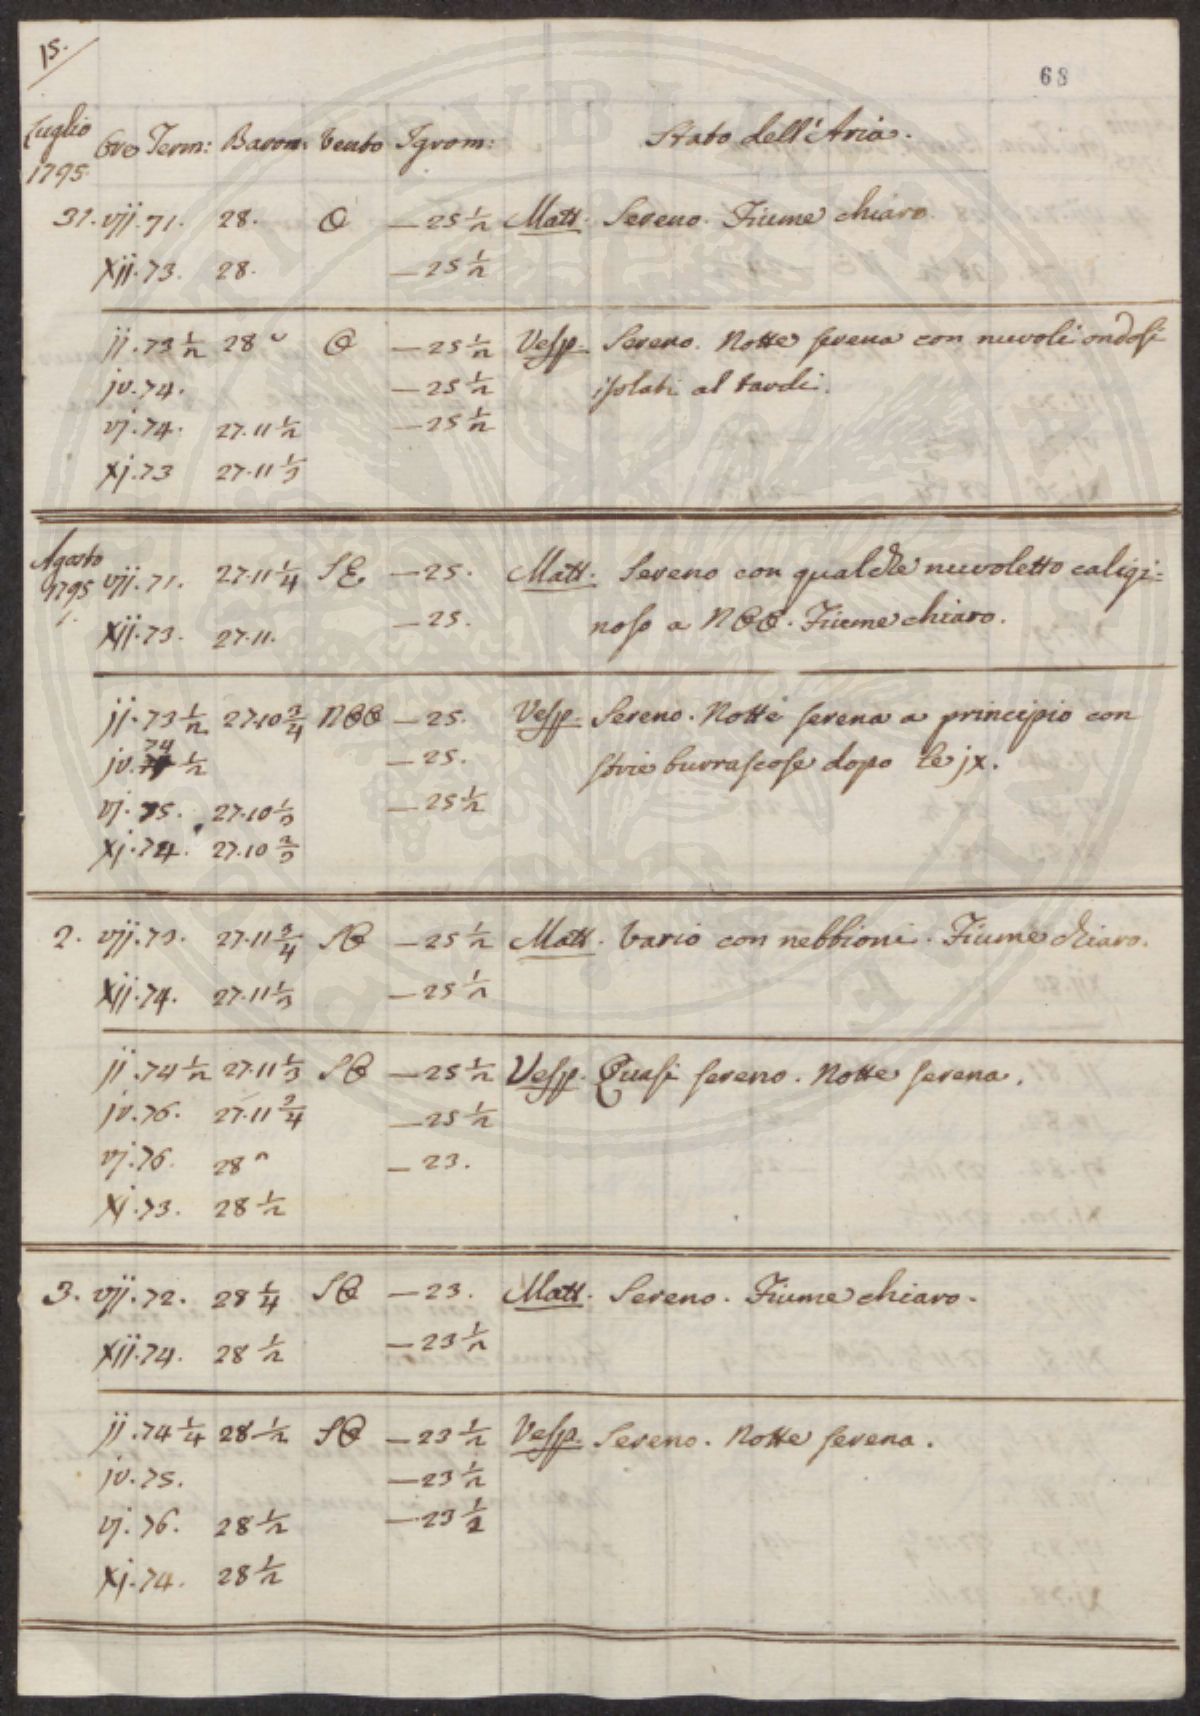 15.
68
Luglio 1795 Ore Term: Barom: Vento Igrom: Stato dell'Aria.
31. vij. 71. 28. O — 25 1/2 Matt. Sereno. Fiume chiaro.
xij. 73. 28. — 25 1/2
ij. 73 1/2 28 O — 25 1/2 Vesp. Sereno. Notte serena con nuvoli ondosi
iv. 74. — 25 1/2 isolati al tardi.
vj. 74. 27. 11 1/2 — 25 1/2
xj. 73 27. 11 1/3
Agosto 1795
1. vij. 71. 27. 11 1/4 SE — 25. Matt: Sereno con qualche nuvoletto caligi=
xij. 73. 27. 11. — 25. noso a NOO. Fiume chiaro.
ij. 73 1/2 27. 10 3/4 NOO — 25. Vesp. Sereno. Notte serena a principio con
iv. 74 1/2 — 25. strie burrascose dopo le jx.
vj. 75. 27. 10 1/3 — 25 1/2
xj. 74. 27. 10 2/3
2. vij. 73. 27. 11 3/4 SO — 25 1/2 Matt. Vario con nebbioni. Fiume chiaro.
xij. 74. 27. 11 1/3 — 25 1/2
ij. 74 1/2 27. 11 1/3 SO — 25 1/2 Vesp. Quasi sereno. Notte serena.
iv. 76. 27. 11 3/4 — 25 1/2
vj. 76. 28 — 23.
xj. 73. 28 1/2
3. vij. 72. 28 1/4 SO — 23. Matt. Sereno. Fiume chiaro.
xij. 74. 28 1/2 — 23 1/2
ij. 74 1/4 28 1/2 SO — 23 1/2 Vesp. Sereno. Notte serena.
iv. 75. — 23 1/2
vj. 76. 28 1/2 — 23 1/2
xj. 74. 28 1/2